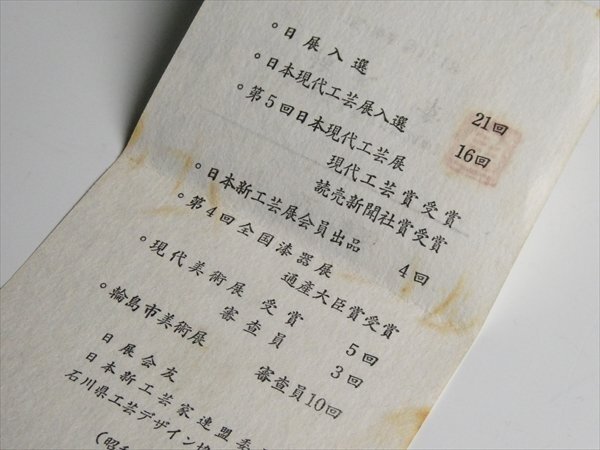 。日展入選 21回
。日本現代工芸展入選 16回
。第5回日本現代工芸展
現代工芸賞受賞
読売新聞社賞受賞
。日本新工芸展会員出品 4回
。第4回全国漆器展
通産大臣賞受賞
。現代美術展 受賞 5回
審査員 3回
。輪島市美術展 審査員10回
日展会友
日本新工芸家連盟委
石川県工芸デザイン
(昭